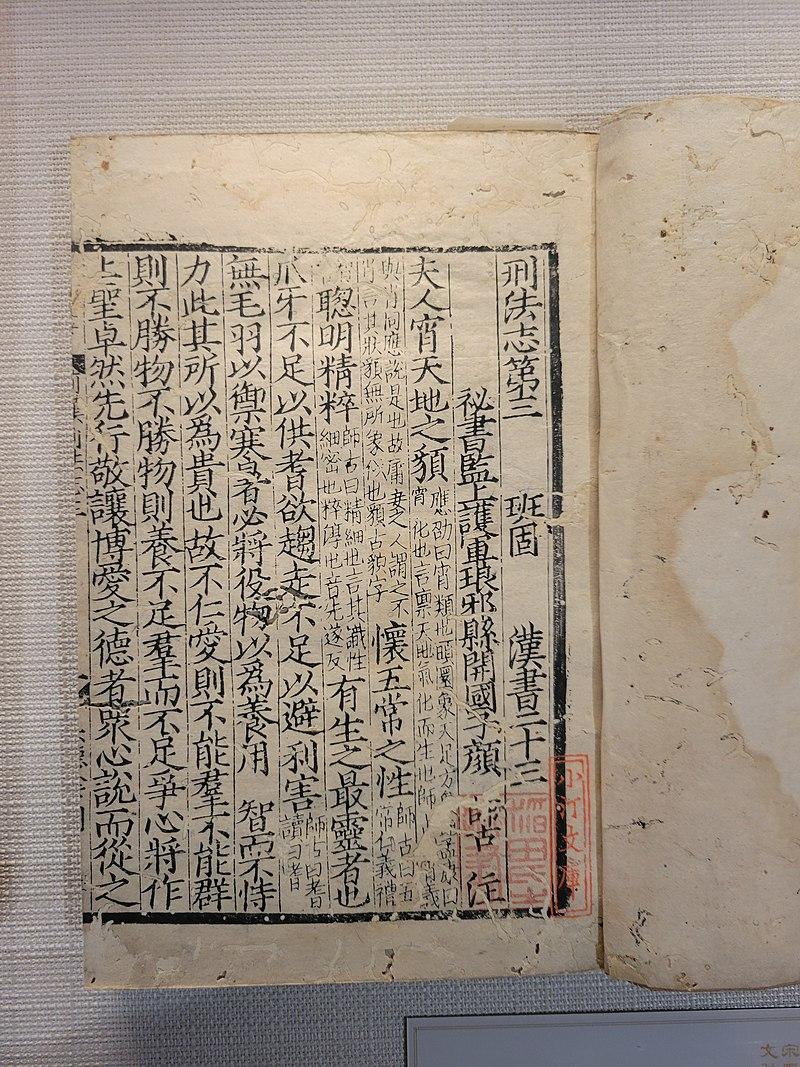 刑法志第三 班固 漢書二十三
祕書監上護軍琅邪縣開國子顏 師古 注
夫人宵天地之䫉 應劭曰宵類也頭圜象天足方
宵 化也言稟天地氣化而生也師 宵義
與肖同應說是也故庸妻之人謂之不
肖言其狀䫉無所象似也䫉古貌字 懷五常之性 師古曰五
常仁義禮
聦明精粹 師古曰精細也言其識性
細密也粹淳也音先遂反 有生之最靈者也
爪牙不足以供耆欲趨走不足以避利害 師古曰耆
讀曰嗜
無毛羽以禦寒暑必將役物以為養用 智而不恃
力此其所以為貴也故不仁愛則不能羣不能群
則不勝物不勝物則養不足羣而不足爭心將作
上聖卓然先行敬讓博愛之德者衆心說而從之
小汀文庫
文宋